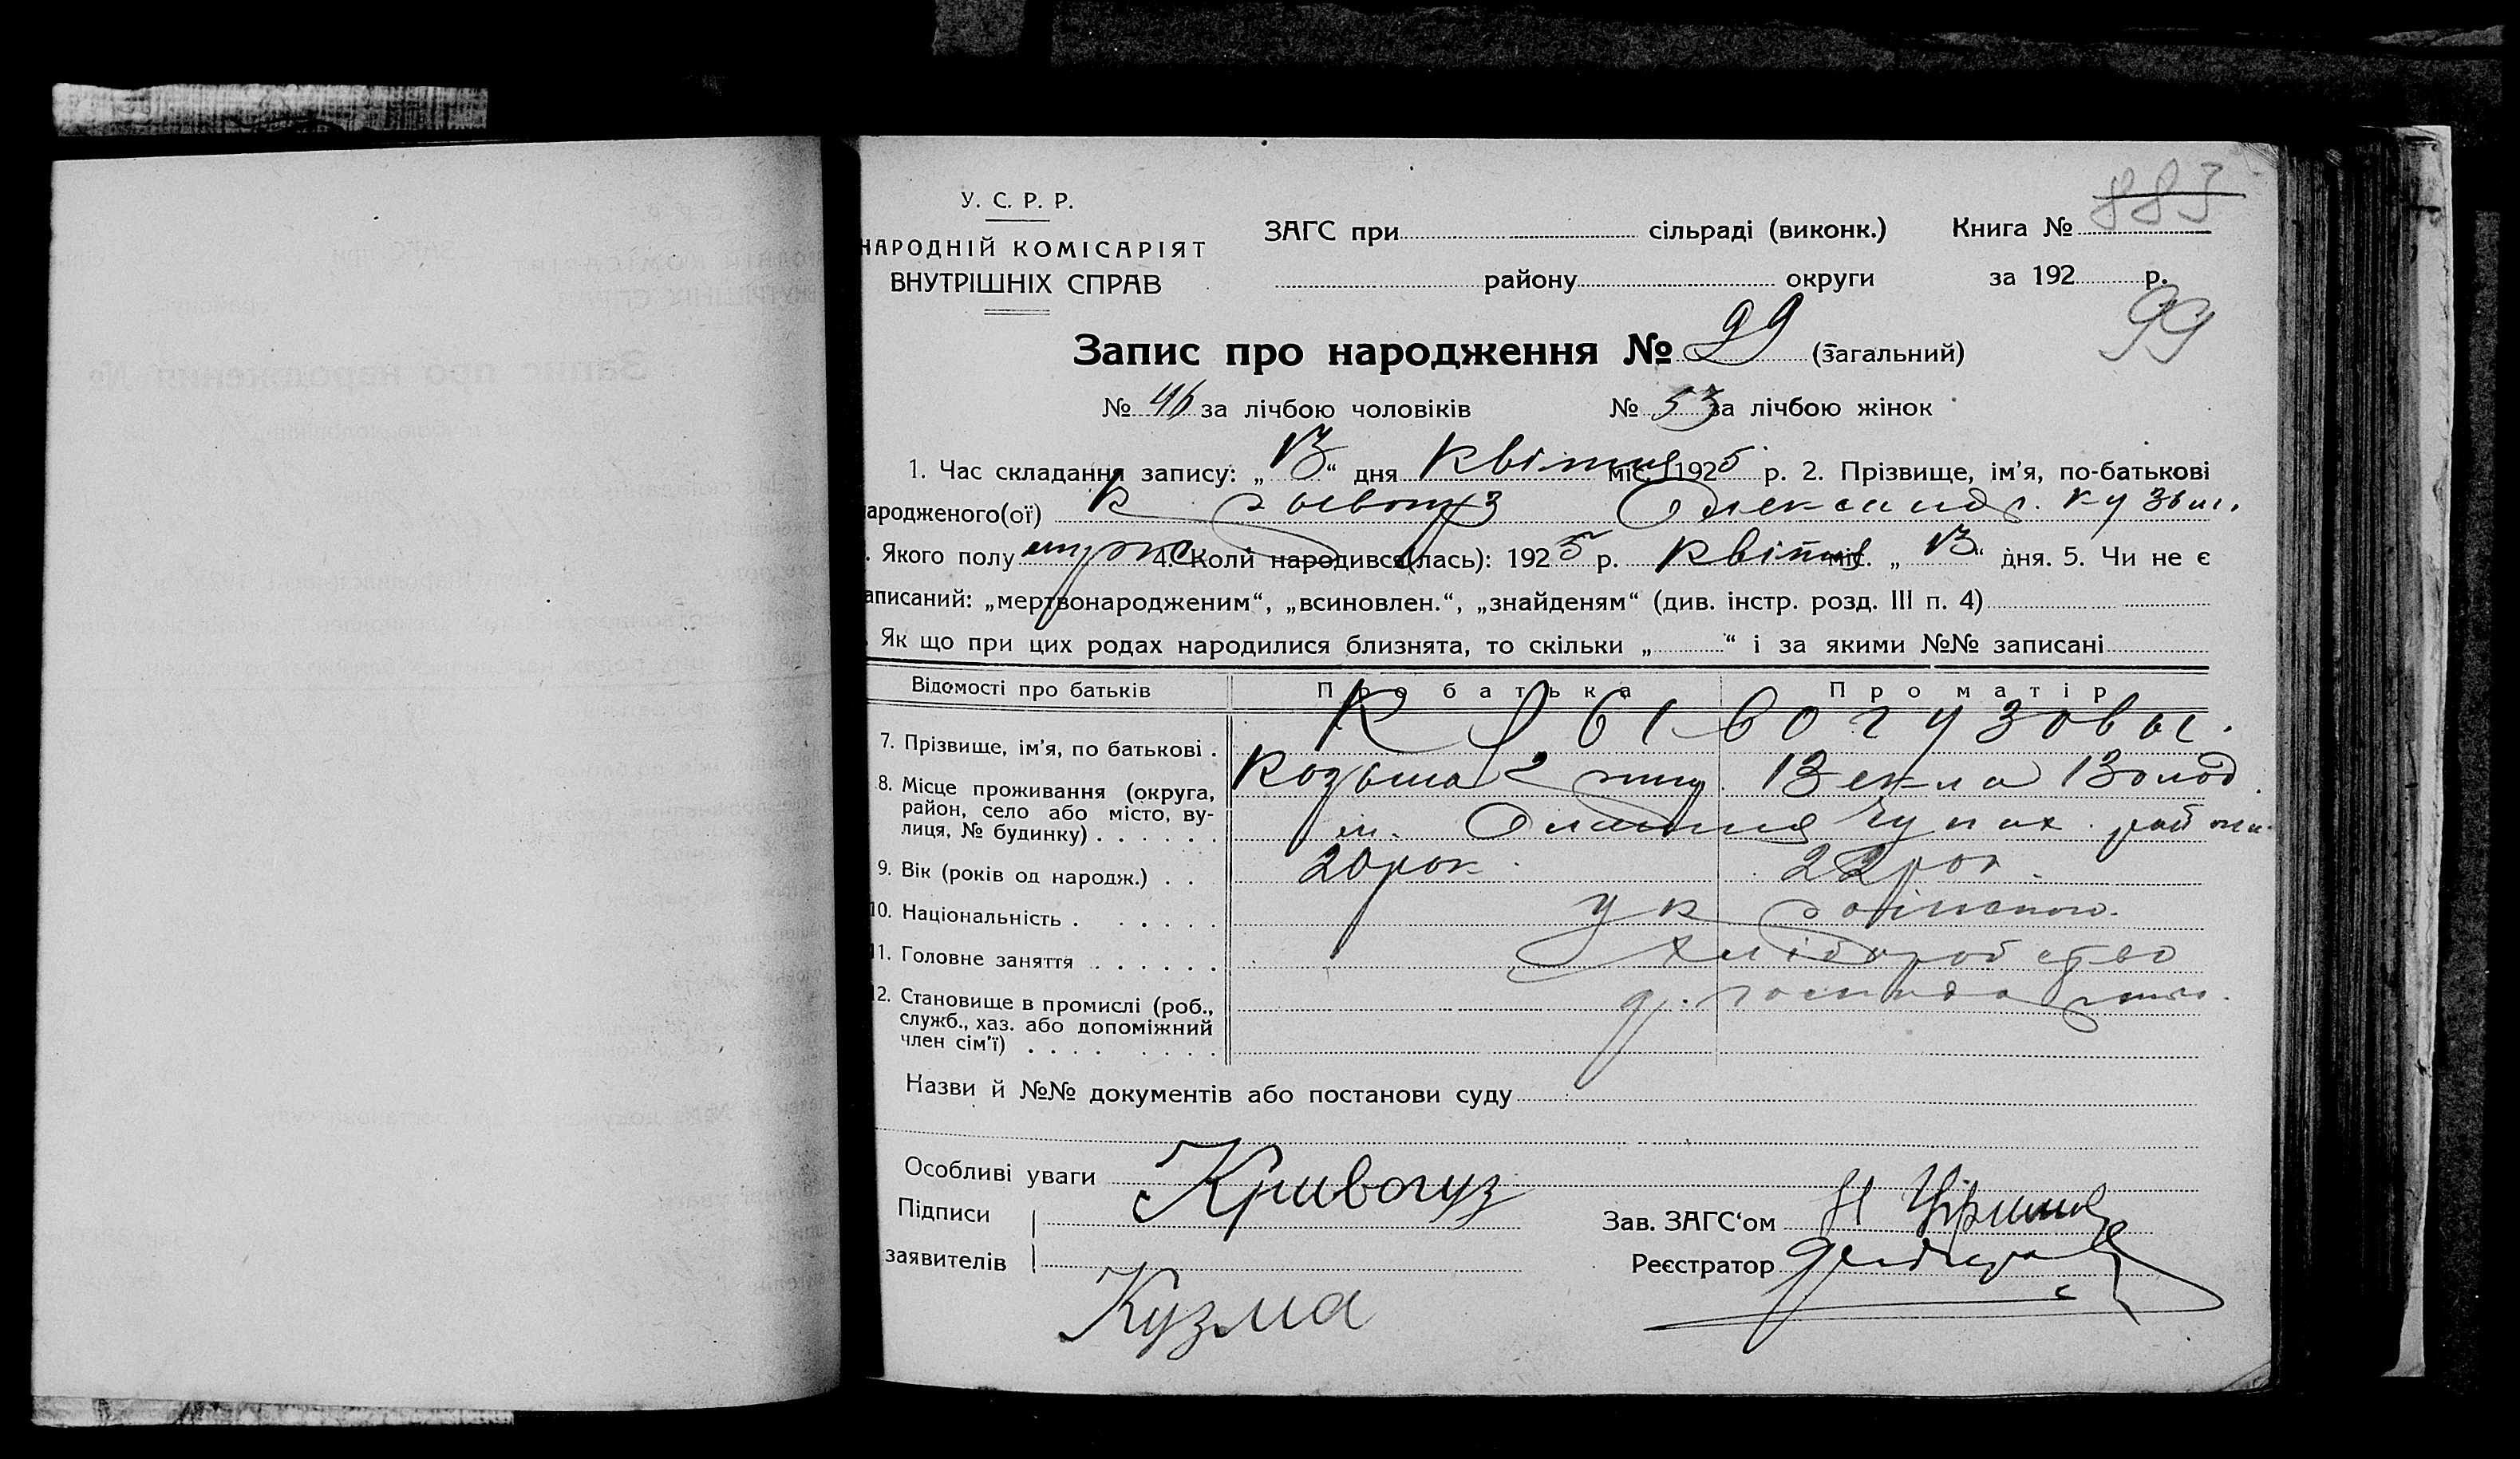 883
У. С. Р. Р.
НАРОДНІЙ КОМІСАРІЯТ
ВНУТРІШНІХ СПРАВ
ЗАГС при сільраді (виконк.) Книга №
району округи за 192 р.
99
Запис про народження № 99 (загальний)
№ 46 за лічбою чоловіків № 53 за лічбою жінок
1. Час складання запису: „13“ дня квітня міс. 1925 р. 2. Прізвище, ім’я, по-батькові
ародженого(ої) Олександр. Кузьм.
. Якого полу муж 4. Коли народився(лась): 1925 р. квітня міс. „13“ дня. 5. Чи не є
аписаний: „мертвонародженим“, „всиновлен.“, „знайденям“ (див. інстр. розд. III п. 4)
. Як що при цих родах народилися близнята, то скільки „ “ і за якими №№ записані
Відомості про батьків Про батька Про матір
7. Прізвище, ім’я, по батькові . Крывогузовы.
8. Місце проживання (округа,
район, село або місто, ву-
лиця, № будинку) . . . . . . м. район
9. Вік (років од народж.) . . 20 рок. 22 рок.
10. Національність . . . . . . Українськ.
11. Головне заняття . . . . . . хліборобство
12. Становище в промислі (роб.,
служб., хаз. або допоміжний
член сім’ї) . . . . . . . .
Назви й №№ документів або постанови суду
Особливі уваги
Підписи Кривогуз
заявителів Кузма
Зав. ЗАГС‘ом
Реєстратор